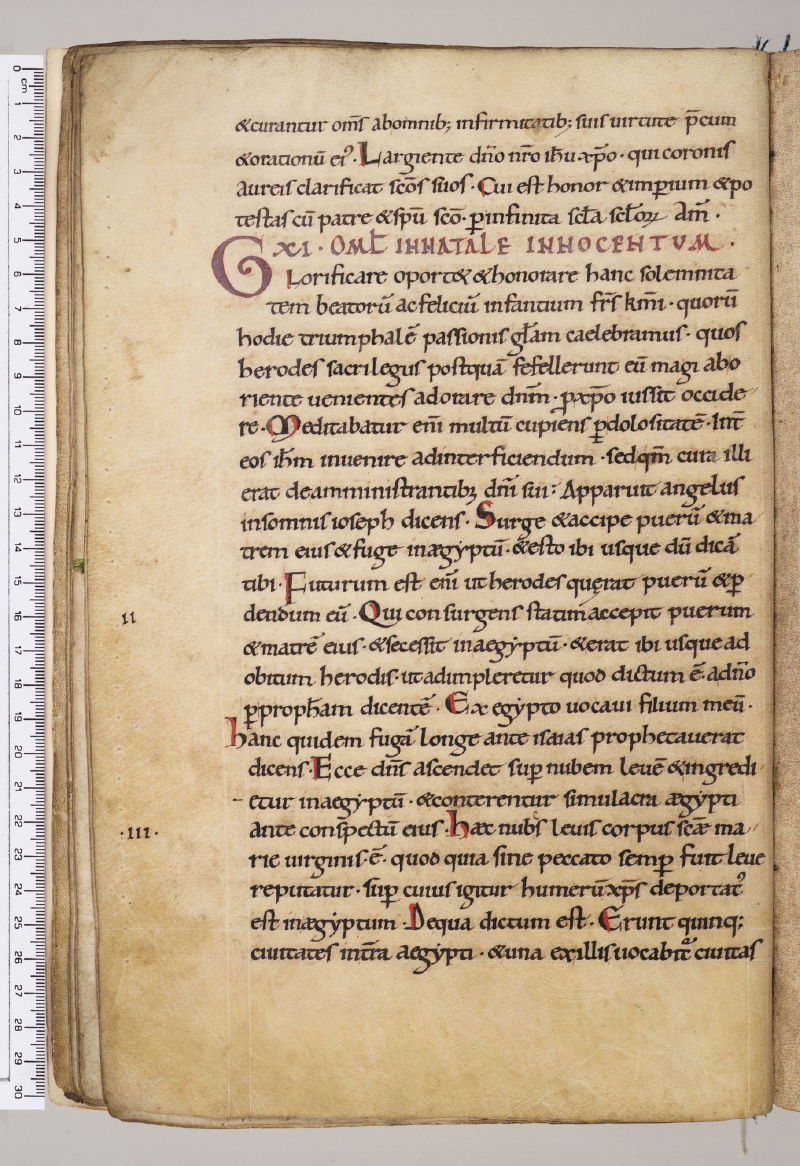 &curantur om̅s abomnib; infirmitatib; suis uirtute p̅cum
&orationū ei᾽. Largiente dn̅o nr̅o ih̅u xp̅o · qui coronis
aureis clarificat sc̅os suos · Cui est honor &imꝑium &po
testas cū patre &spū sc̅o · ꝑinfinita scl̅a scl̅oꝝ Am̅ ·
XI · OML̅ INNATALE INNOCENTUM ·
Glorificare oport& &honorare hanc solemnita
tem beatorū acfeliciū infantium fr̅s km̅i · quorū
hodie triumphalē passionis gl̅am caelebramus · quos
herodes sacrilegus postquā fefellerunt eū magi abo
riente uenientes adorare dn̅m · ꝓxp̅o iussit occide
re · Meditabatur eni̅ multū cupiens ꝑdolositatē · Int̅
eos ih̅m inuenire adinterficiendum · sedqm̅ cura illi
erat deamministrantibꝫ dn̅i sui : Apparuit angelus
insomnis ioseph dicens · Surge &accipe puerū &ma
trem eius &fuge inægyptū · &esto ibi usque dū dicā
tibi · Futurum est eni̅ ut herodes quęrat puerū &ꝑ
II
dendum eū · Qui consurgens statim accepit puerum
&matrē eius · &secessit inaegyptū · &erat ibi usque ad
obitum herodis · ut adimpleretur quod dictum ē · adn̅o
ꝑproph̅am dicentē · Ex egypto uocaui filium meū ·
hanc quidem fugā longe ante isaias prophetauerat
dicens · Ecce dn̅s ascendet suꝑ nubem leuē &ingredi
etur inaegyptū · &conterentur simulacra ægypti
·III·
ante conspectū eius · hæc nubs leuis corpus sc̅æ ma
rie uirginis · ē · quod quia sine peccato semꝑ fuit leue
reputatur · suꝑ cuius igitur humerū xp̅s deportat᾽
est inægyptum · Dequa dictum est · Erunt quinq;
ciuitates intr̅a aegypti · &una exillis uocabit᾽ ciuitas